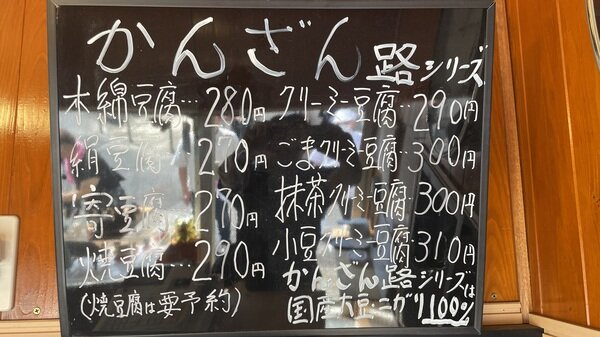 かんざん路シリーズ
木綿豆腐…280円
絹豆腐…270円
寄豆腐…270円
焼豆腐…290円
(焼豆腐は要予約)
クリーミー豆腐…290円
ごまクリーミー豆腐…300円
抹茶クリーミー豆腐…300円
小豆クリーミー豆腐…310円
かんざん路シリーズは
国産大豆・ニガリ100%